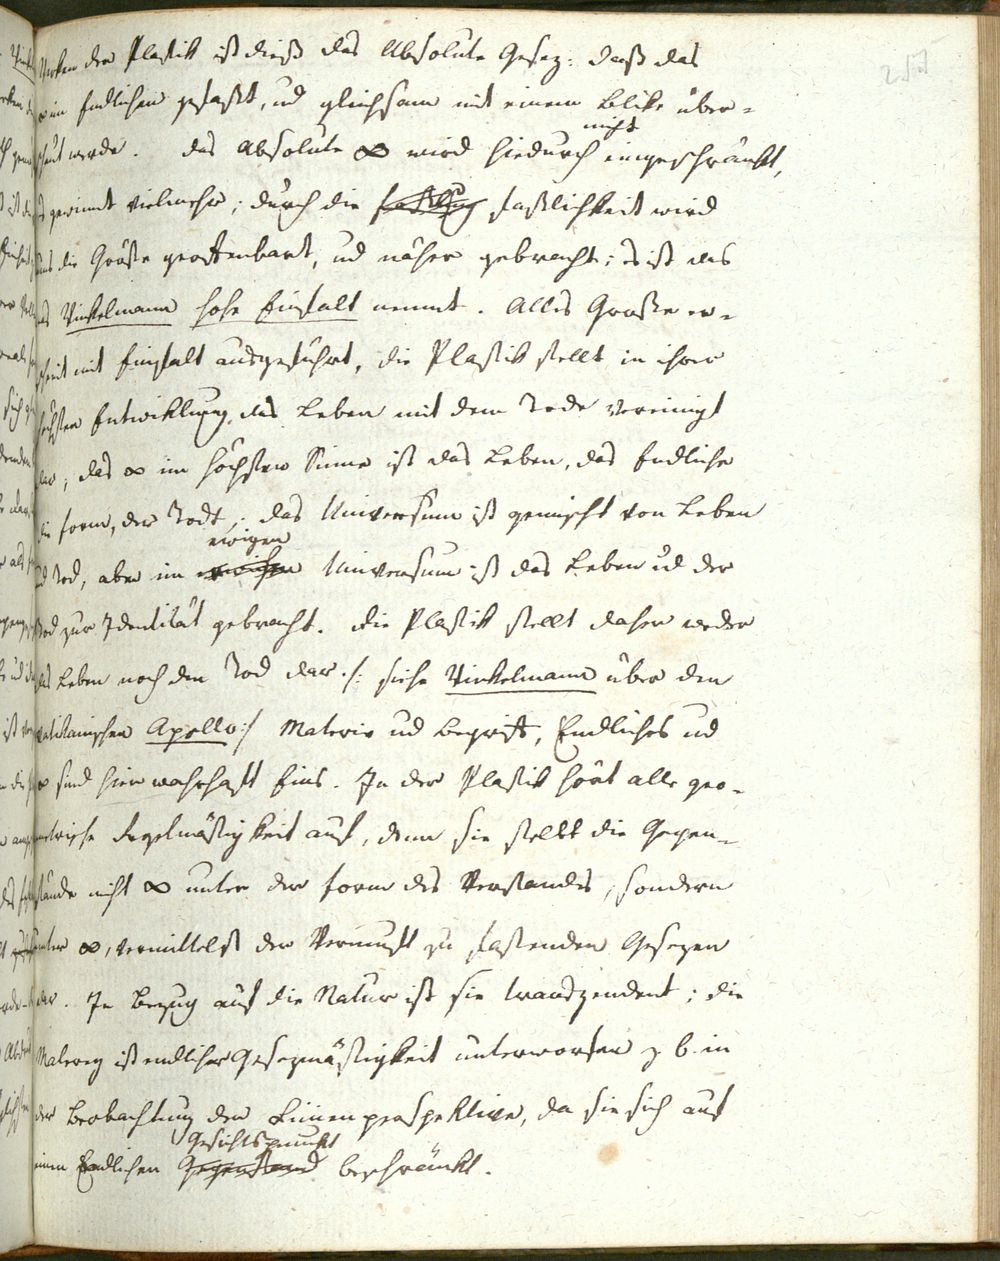 Werken der Plastik ist dieß das Absolute Gesez: daß das
∞ im Endlichen gefaßt, ud gleichsam mit einem Blike über-
schaut werde. Das Absolute ∞ wird hiedurch nicht eingeschränkt,
es gewinnt vielmehr; durch die Faßlichkeit wird
uns die Größe geoffenbart, ud näher gebracht; dieß ist das
was Vinkelmann hohe Einfalt nennt. Alles Große er-
scheint mit Einfalt ausgeführt, die Plastik stellt in ihrer
höchsten Entwiklung das Leben mit dem Tode vereinigt
dar; das ∞ im höchsten Sinne ist das Leben, das Endliche
die Form, der Todt; das Universum ist gemischt von Leben
und Tod, aber im ewigen Universum ist das Leben ud der
Tod zur Identität gebracht. Die Plastik stellt daher weder
das Leben noch den Tod dar. /: siehe Vinkelmann über den
vatikanischen Apollo :/ Materie ud Begriff, Endliches ud
∞ sind hier wahrhaft Eins. In der Plastik hört alle geo-
metrische Regelmäßigkeit auf, denn sie stellt die Gegen-
stände nicht ∞ unter der Form des Verstandes, sondern
unter ∞, vermittelst der Vernunft zu fassenden Gesezen
dar. In Bezug auf die Natur ist sie transzendent; die
Malerey ist endlicher Gesezmäßigkeit unterworfen z. B. in
der Beobachtung der Linienperspektive, da sie sich auf
einen Endlichen Gesichtspunkt beschränkt.